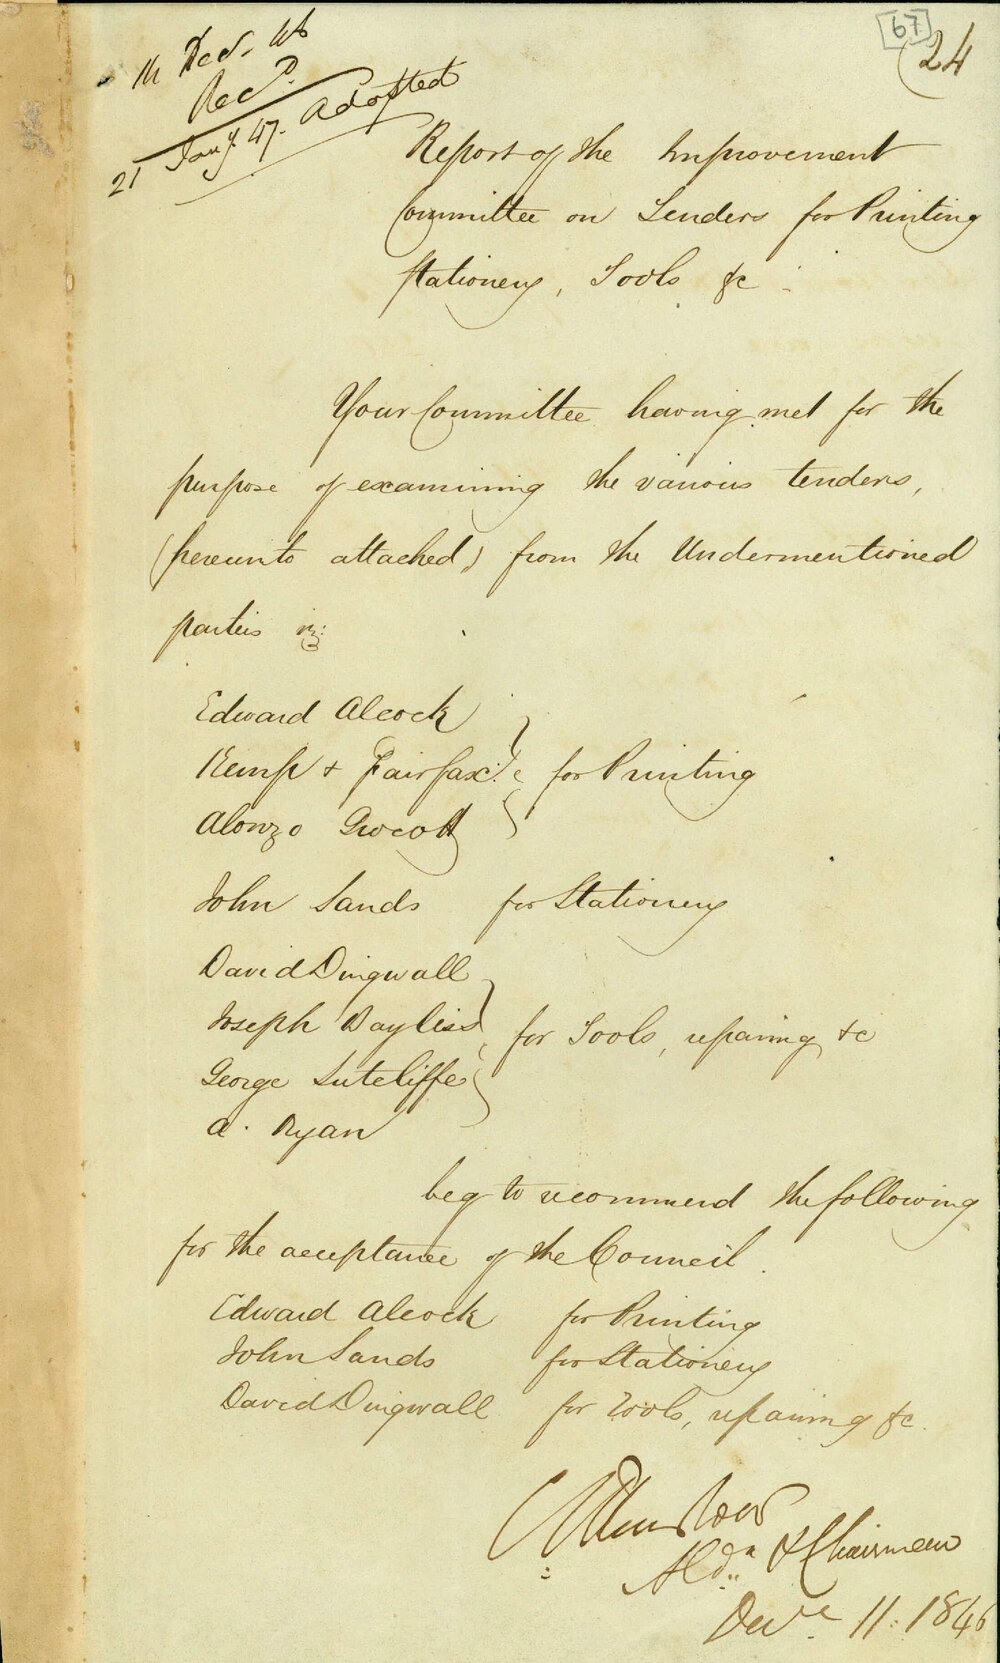 67
24
11 Decr. 46
Recd.
21 Jany. 47. Adopted
Report of the Improvement
Committee on Tenders for Printing
Stationery, Tools &c
Your Committee having met for the
purpose of examining the various tenders,
(hereunto attached) from the Undermentioned
parties viz:
Edward Alcock
Kemp + Fairfax for Printing
Alonzo Grocott
John Sands for Stationery
David Dingwall
Joseph Bayliss for Tools, repairing &c
George Sutcliffe
A. Ryan
beg to recommend the following
for the acceptance of the Council.
Edward Alcock for Printing
John Sands for Stationery
David Dingwall for Tools, repairing &c.
Aldn. & Chairman
Decr. 11. 1846